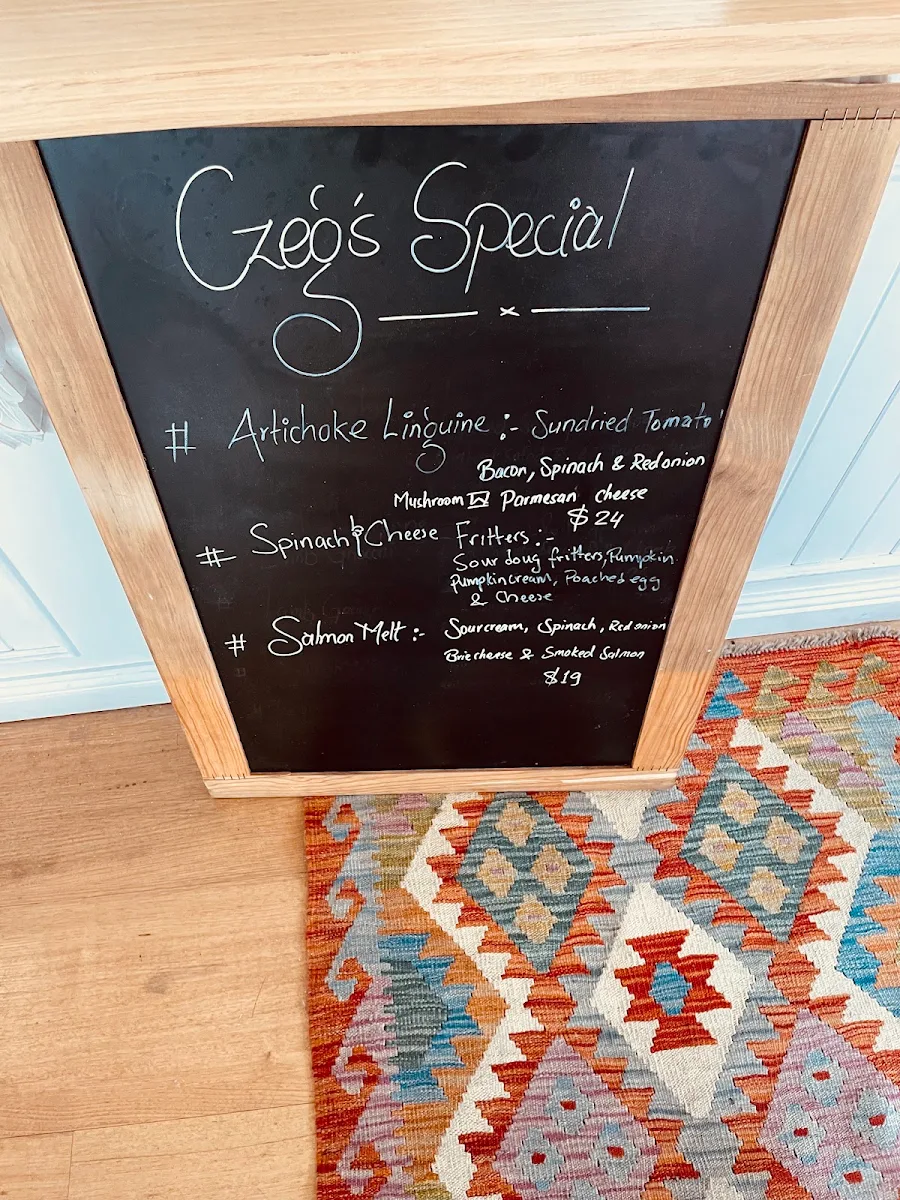 Czeg's Special
# Artichoke Linguine :- Sundried Tomato
Bacon, Spinach & Red onion
Mushroom Parmesan cheese
$24
# Spinach & Cheese Fritters :-
Sour doug fritters, Pumpkin
pumpkin cream, Poached egg
& Cheese
# Salmon Melt :- Sourcream, Spinach, Red onion
Brie cheese & Smoked Salmon
$19